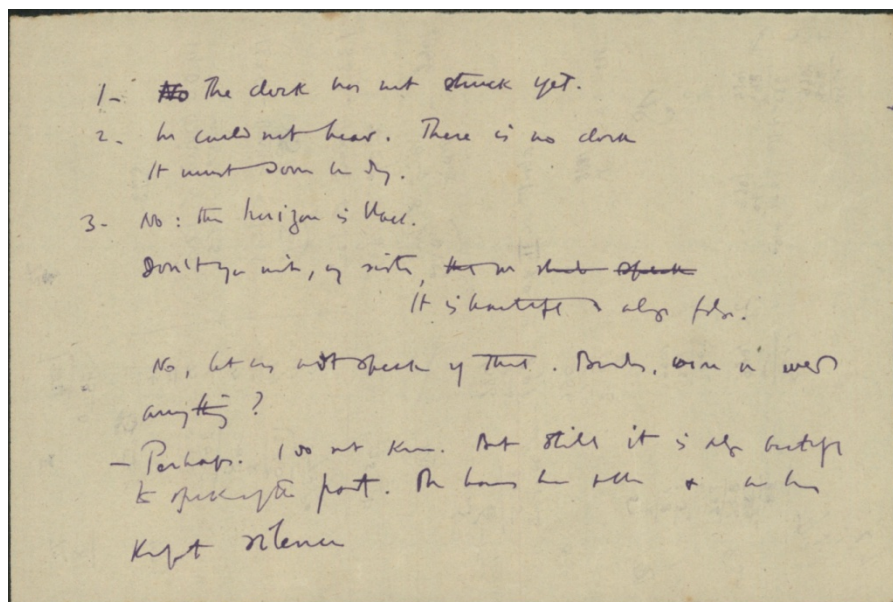 1- No The clock has not struck yet.
2. We could not hear. There is no clock
It must soon be day.
3- No: the horizon is black.
Don't you wish, my sister, that we should speak
It is beautiful & always false.
No, let us not speak of that. Besides, were we ever
anything?
- Perhaps. I do not know. But still it is always beautiful
to speak of the past. The hours have fallen & we have
Kept silence